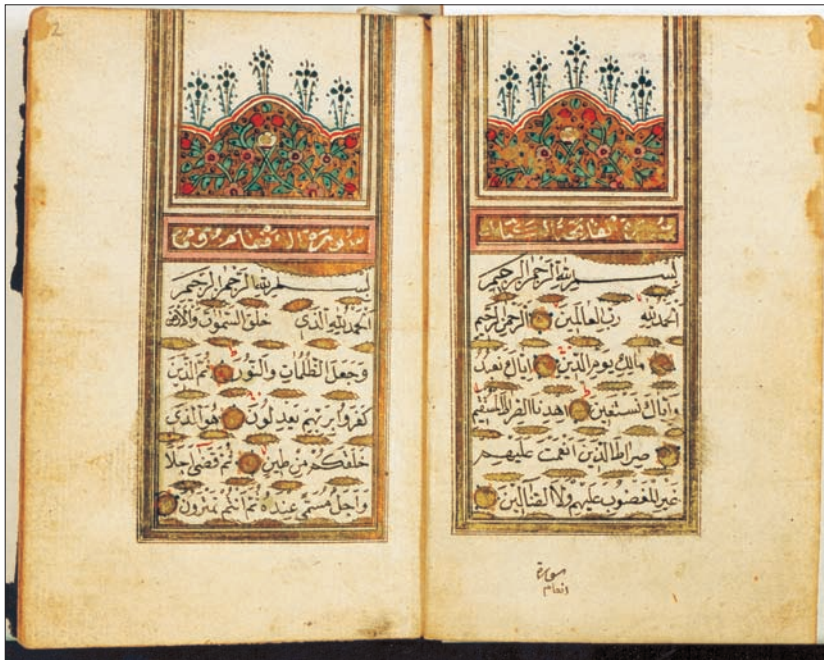 سورة فاتحة الكتاب
بِسْمِ اللهِ الرَّحْمٰنِ الرَّحِيمِ
اَلْحَمْدُ لِلّٰهِ رَبِّ الْعَالَمِينَ اَلرَّحْمٰنِ الرَّحِيمِ
مَالِكِ يَوْمِ الدِّينِ اِيَّاكَ نَعْبُدُ
وَاِيَّاكَ نَسْتَعِينُ اِهْدِنَا الصِّرَاطَ الْمُسْتَقِيمَ
صِرَاطَ الَّذِينَ اَنْعَمْتَ عَلَيْهِمْ
غَيْرِ الْمَغْضُوبِ عَلَيْهِمْ وَلَا الضَّالِّينَ
سورة
انعام
2
سورة الانعام
بِسْمِ اللهِ الرَّحْمٰنِ الرَّحِيمِ
اَلْحَمْدُ لِلّٰهِ الَّذِي خَلَقَ السَّمٰوَاتِ وَالْاَرْضَ
وَجَعَلَ الظُّلُمَاتِ وَالنُّورَ ثُمَّ الَّذِينَ
كَفَرُوا بِرَبِّهِمْ يَعْدِلُونَ هُوَ الَّذِي
خَلَقَكُمْ مِنْ طِينٍ ثُمَّ قَضٰى اَجَلًا
وَاَجَلٌ مُسَمًّى عِنْدَهُ ثُمَّ اَنْتُمْ تَمْتَرُونَ